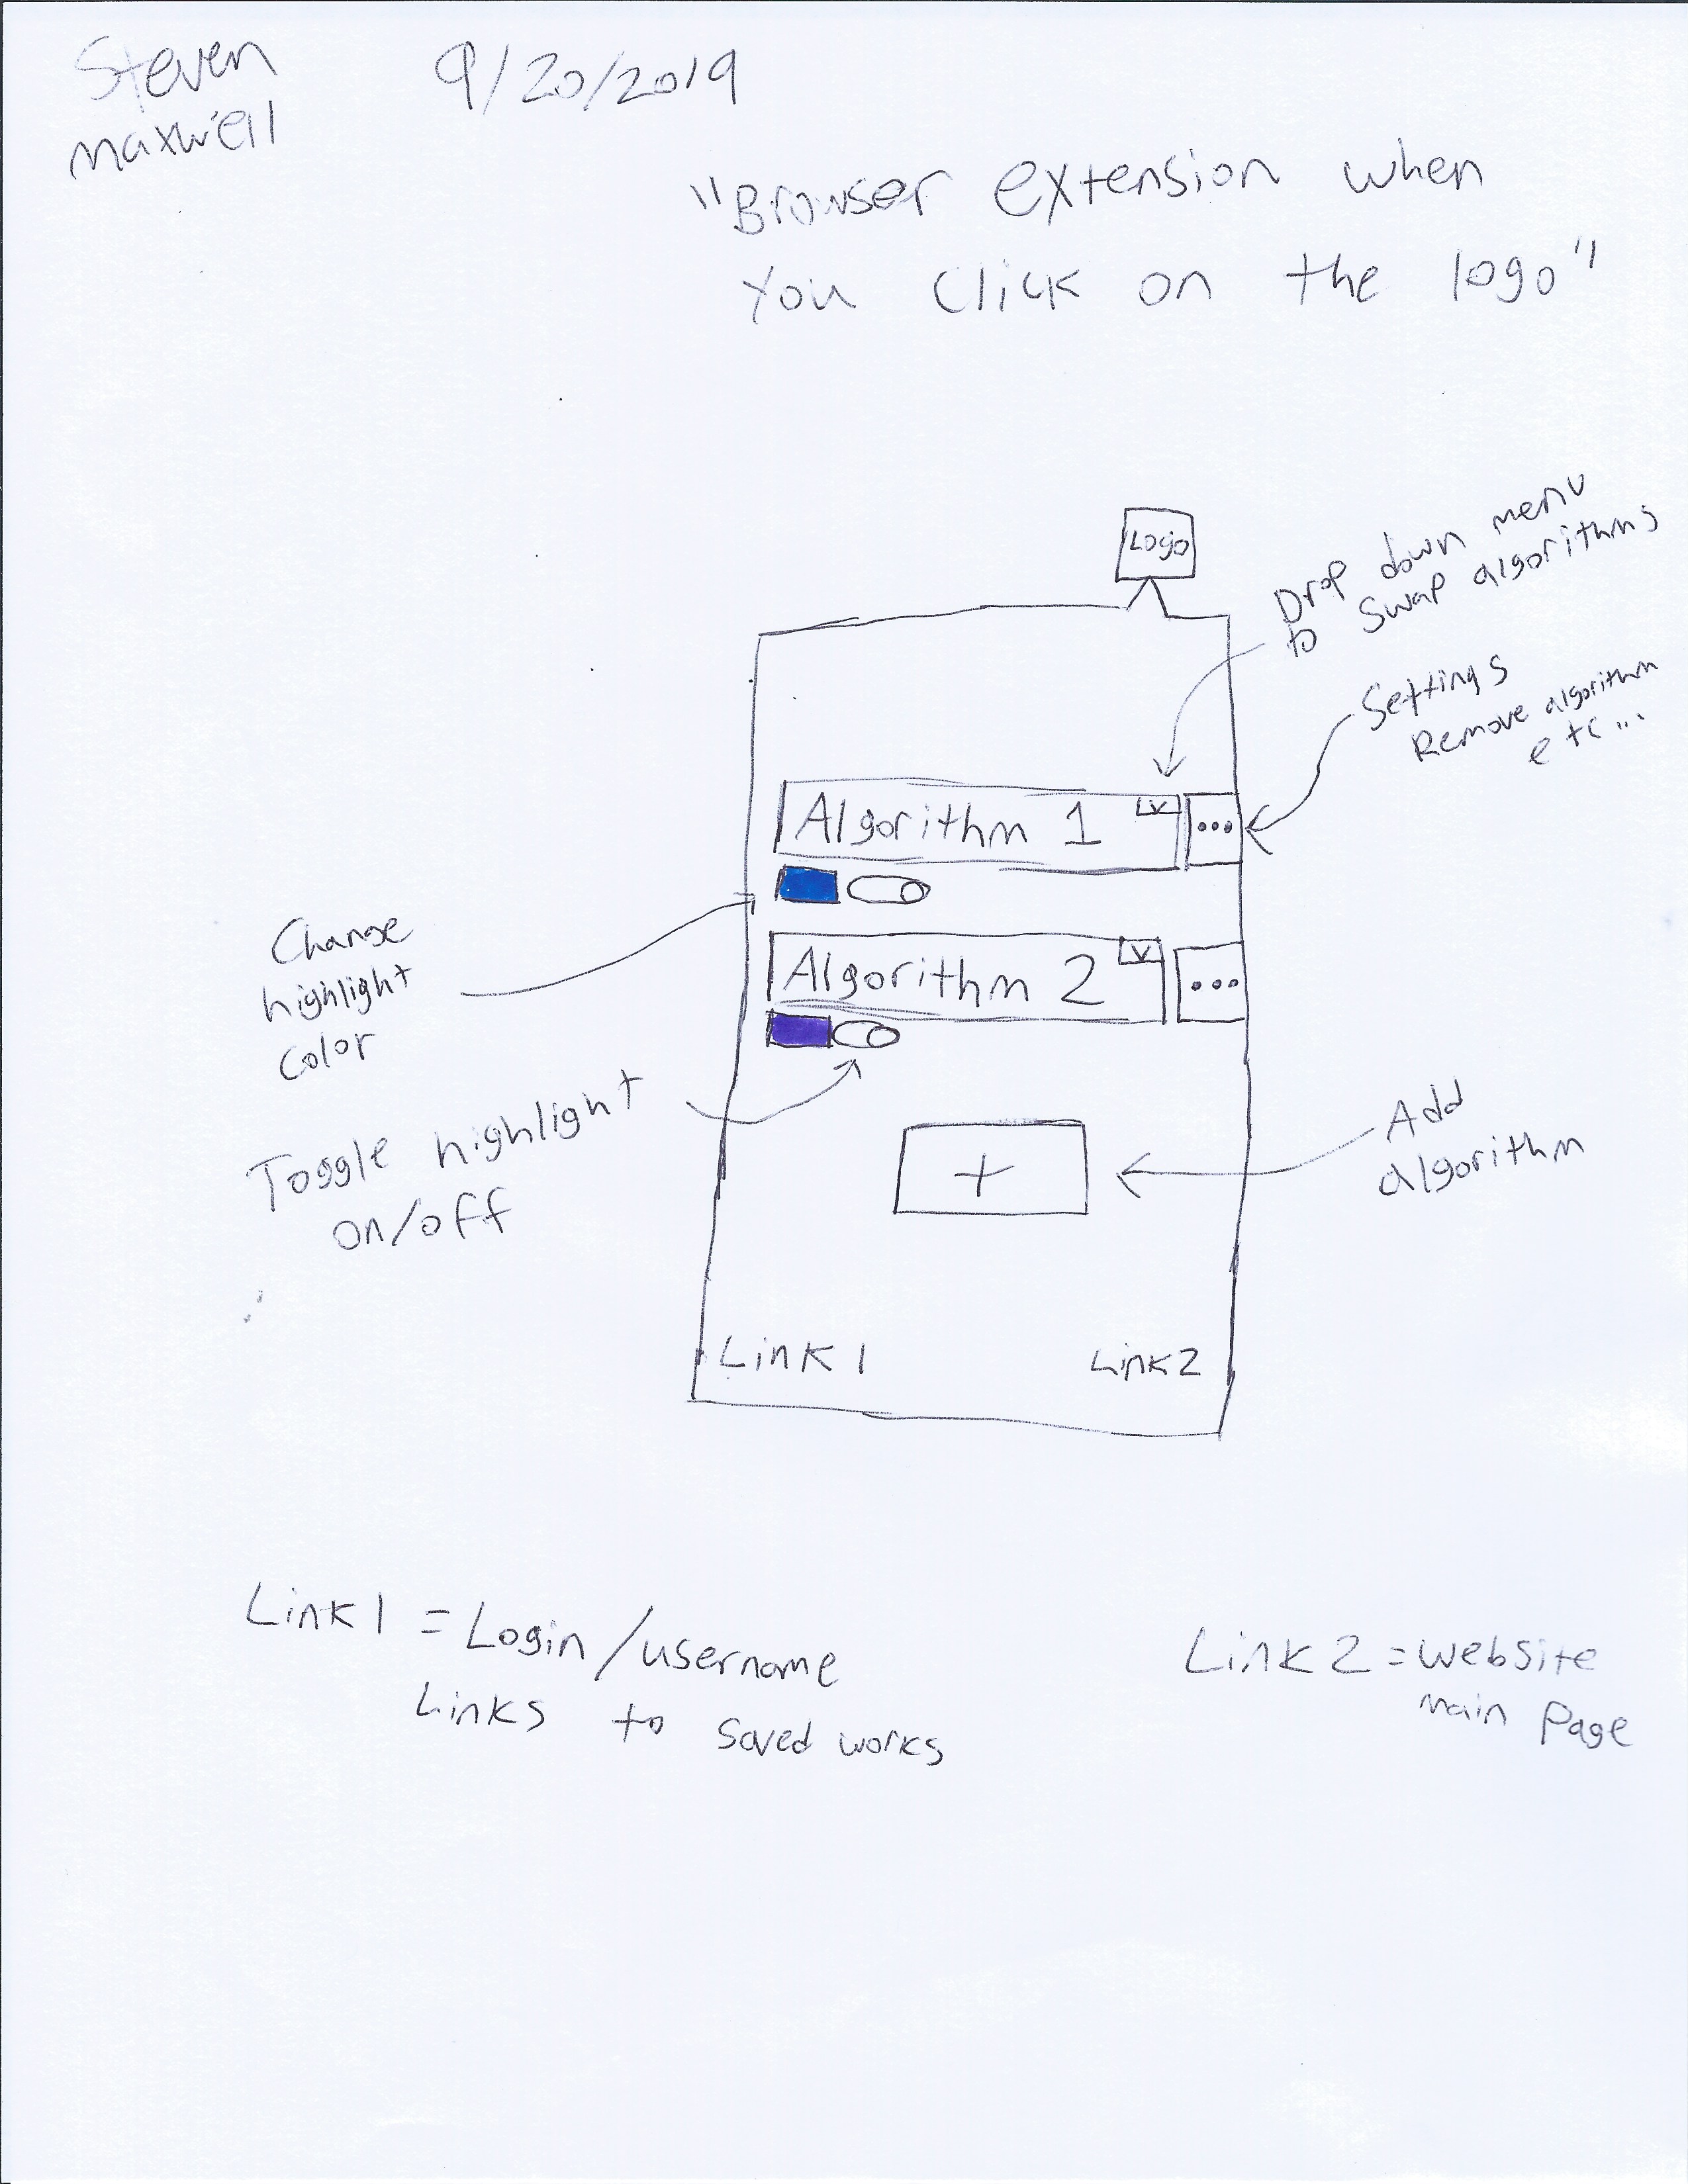 Steven
maxwell
9/20/2019
"Browser extension when
you click on the logo"
Logo
Drop down menu
to swap algorithms
Settings
Remove algorithm
etc...
Algorithm 1
v
...
Change
highlight
color
Algorithm 2
v
...
Toggle highlight
on/off
+
Add
algorithm
Link 1
Link 2
Link 1 = Login /username
Links to saved works
Link 2 = website
main page